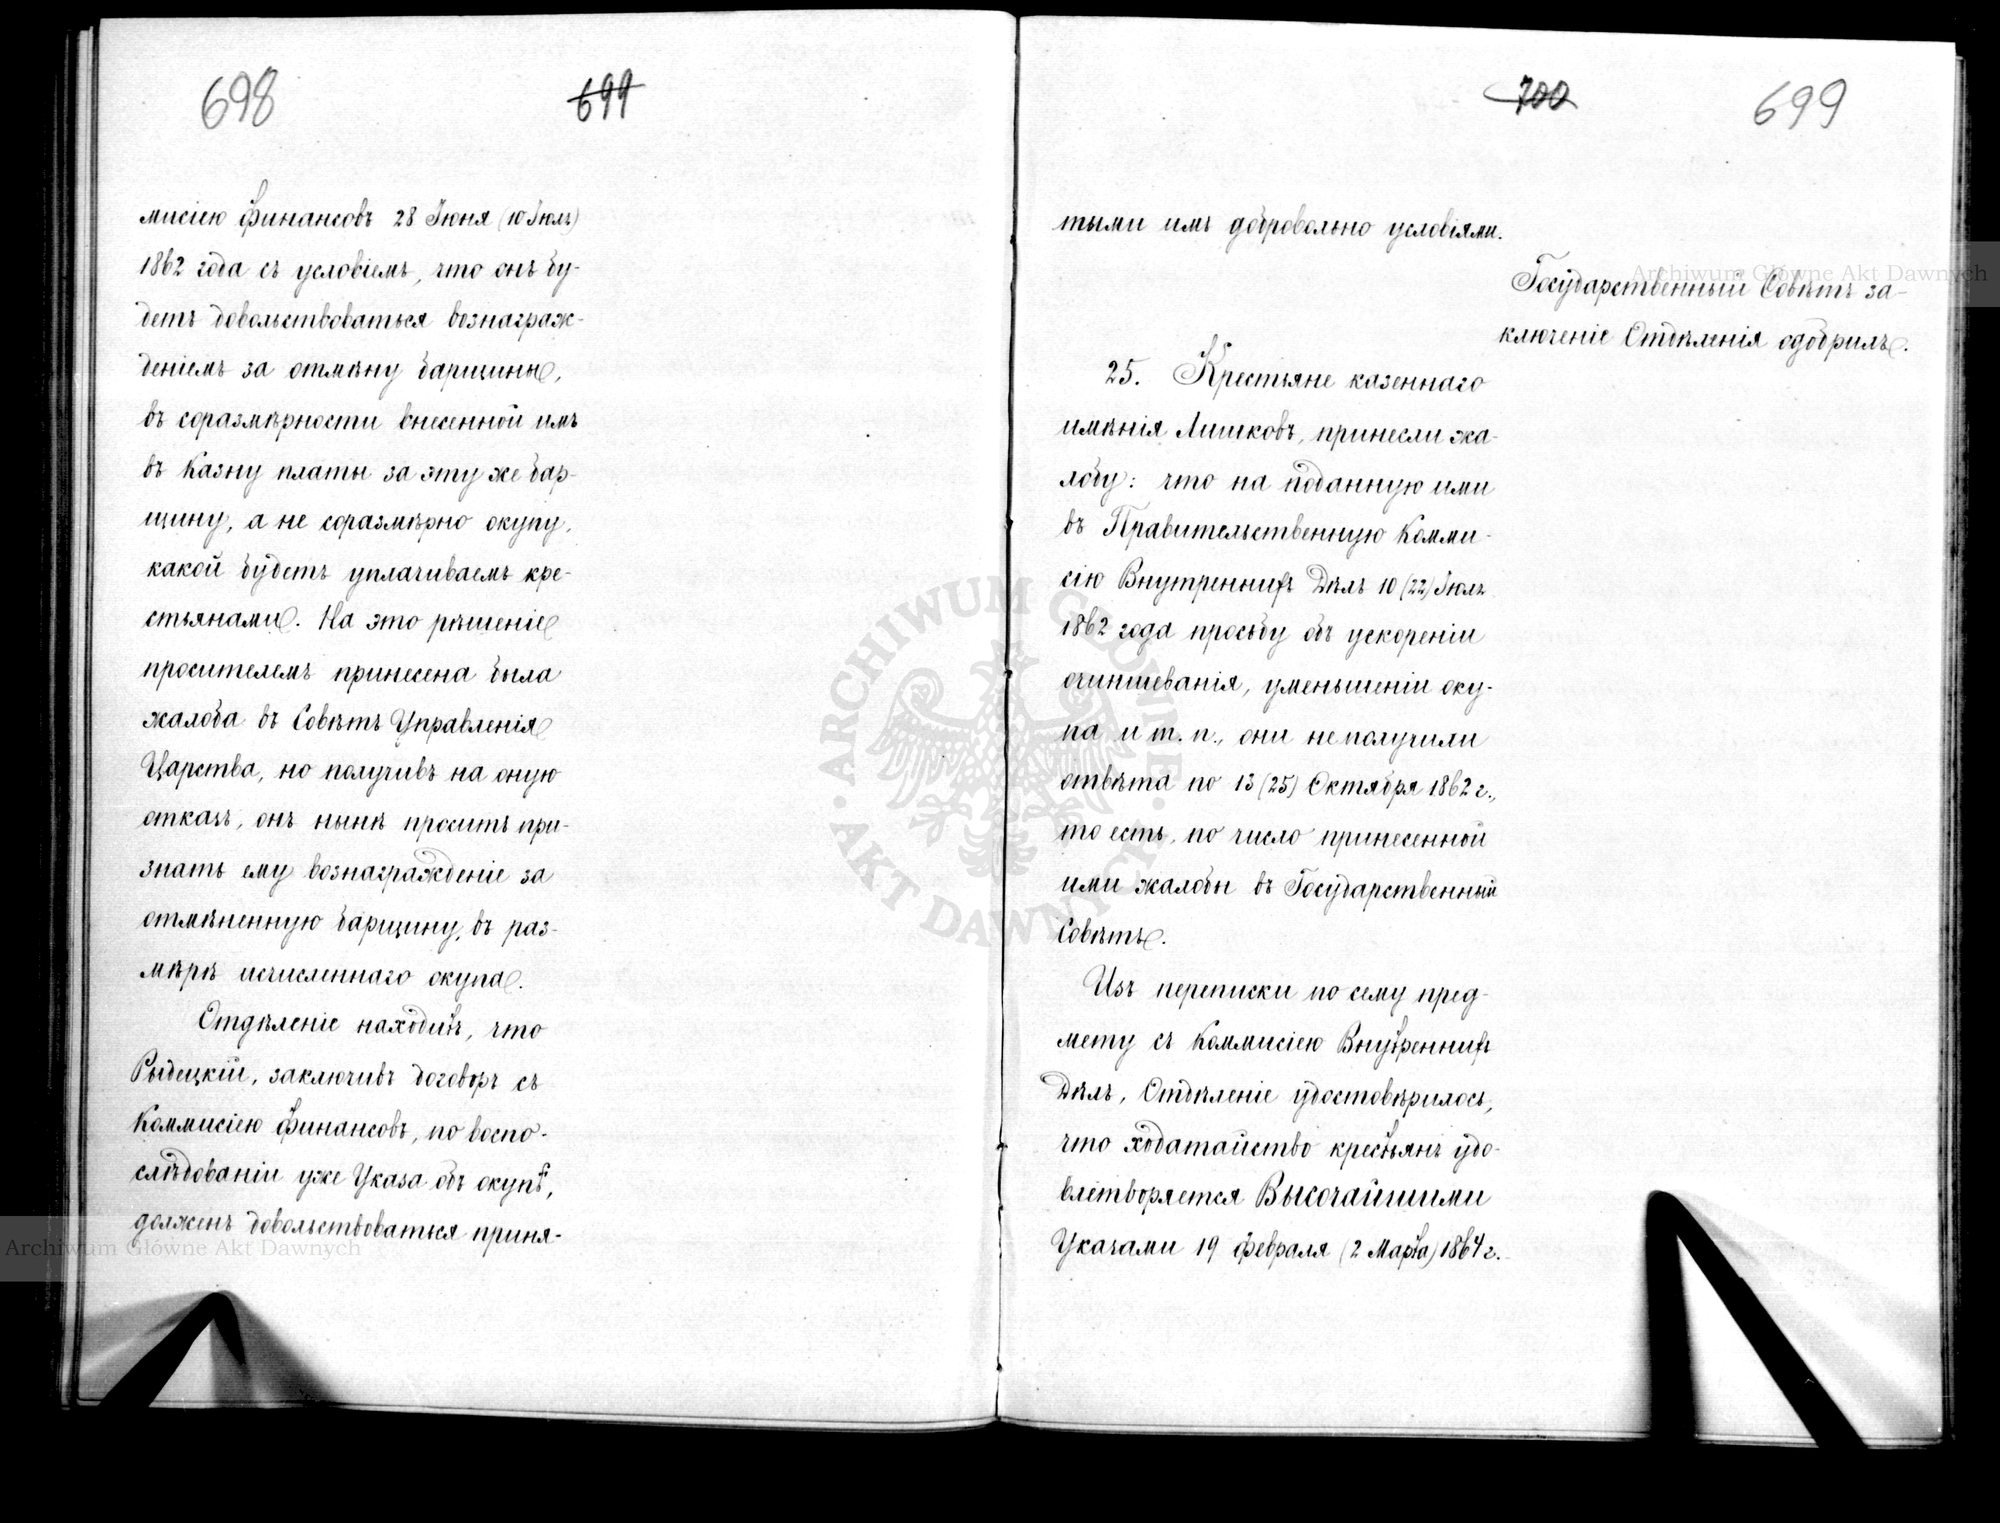 698
699
мисіею Финансовъ 28 Іюня (10 Іюля)
1862 года съ условіемъ, что онъ бу-
детъ довольствоваться вознаграж-
деніемъ за отмѣну барщины,
въ соразмѣрности внесенной имъ
въ Казну платы за эту же бар-
щину, а не соразмѣрно окупу,
какой будетъ уплачиваемъ кре-
стьянами. На это рѣшеніе
просителемъ принесена была
жалоба въ Совѣтъ Управленія
Царства, но получивъ на оную
отказъ, онъ нынѣ проситъ при-
знать ему вознагражденіе за
отмѣненную барщину, въ раз-
мѣрѣ исчисленнаго окупа.
Отдѣленіе находитъ, что
Рыдецкій, заключивъ договоръ съ
Коммисіею Финансовъ, по воспо-
слѣдованіи уже Указа объ окупѣ,
долженъ довольствоваться приня-
700
699
тыми имъ добровольно условіями.
Государственный Совѣтъ за-
ключеніе Отдѣленія одобрилъ.
25. Крестьяне казеннаго
имѣнія Лишковъ, принесли жа-
лобу: что на поданную ими
въ Правительственную Комми-
сію Внутреннихъ Дѣлъ 10 (22) Іюля
1862 года просьбу объ ускореніи
очиншеванія, уменьшеніи оку-
па и т. п., они не получили
отвѣта по 13 (25) Октября 1862 г.,
то есть, по число принесенной
ими жалобы въ Государственный
Совѣтъ.
Изъ переписки по сему пред-
мету съ Коммисіею Внутреннихъ
Дѣлъ, Отдѣленіе удостовѣрилось,
что ходатайство крестьянъ удо-
влетворяется Высочайшими
Указами 19 Февраля (2 Марта) 1864 г.
Archiwum Główne Akt Dawnych
Archiwum Główne Akt Dawnych
ARCHIWUM GŁÓWNE · AKT DAWNYCH ·